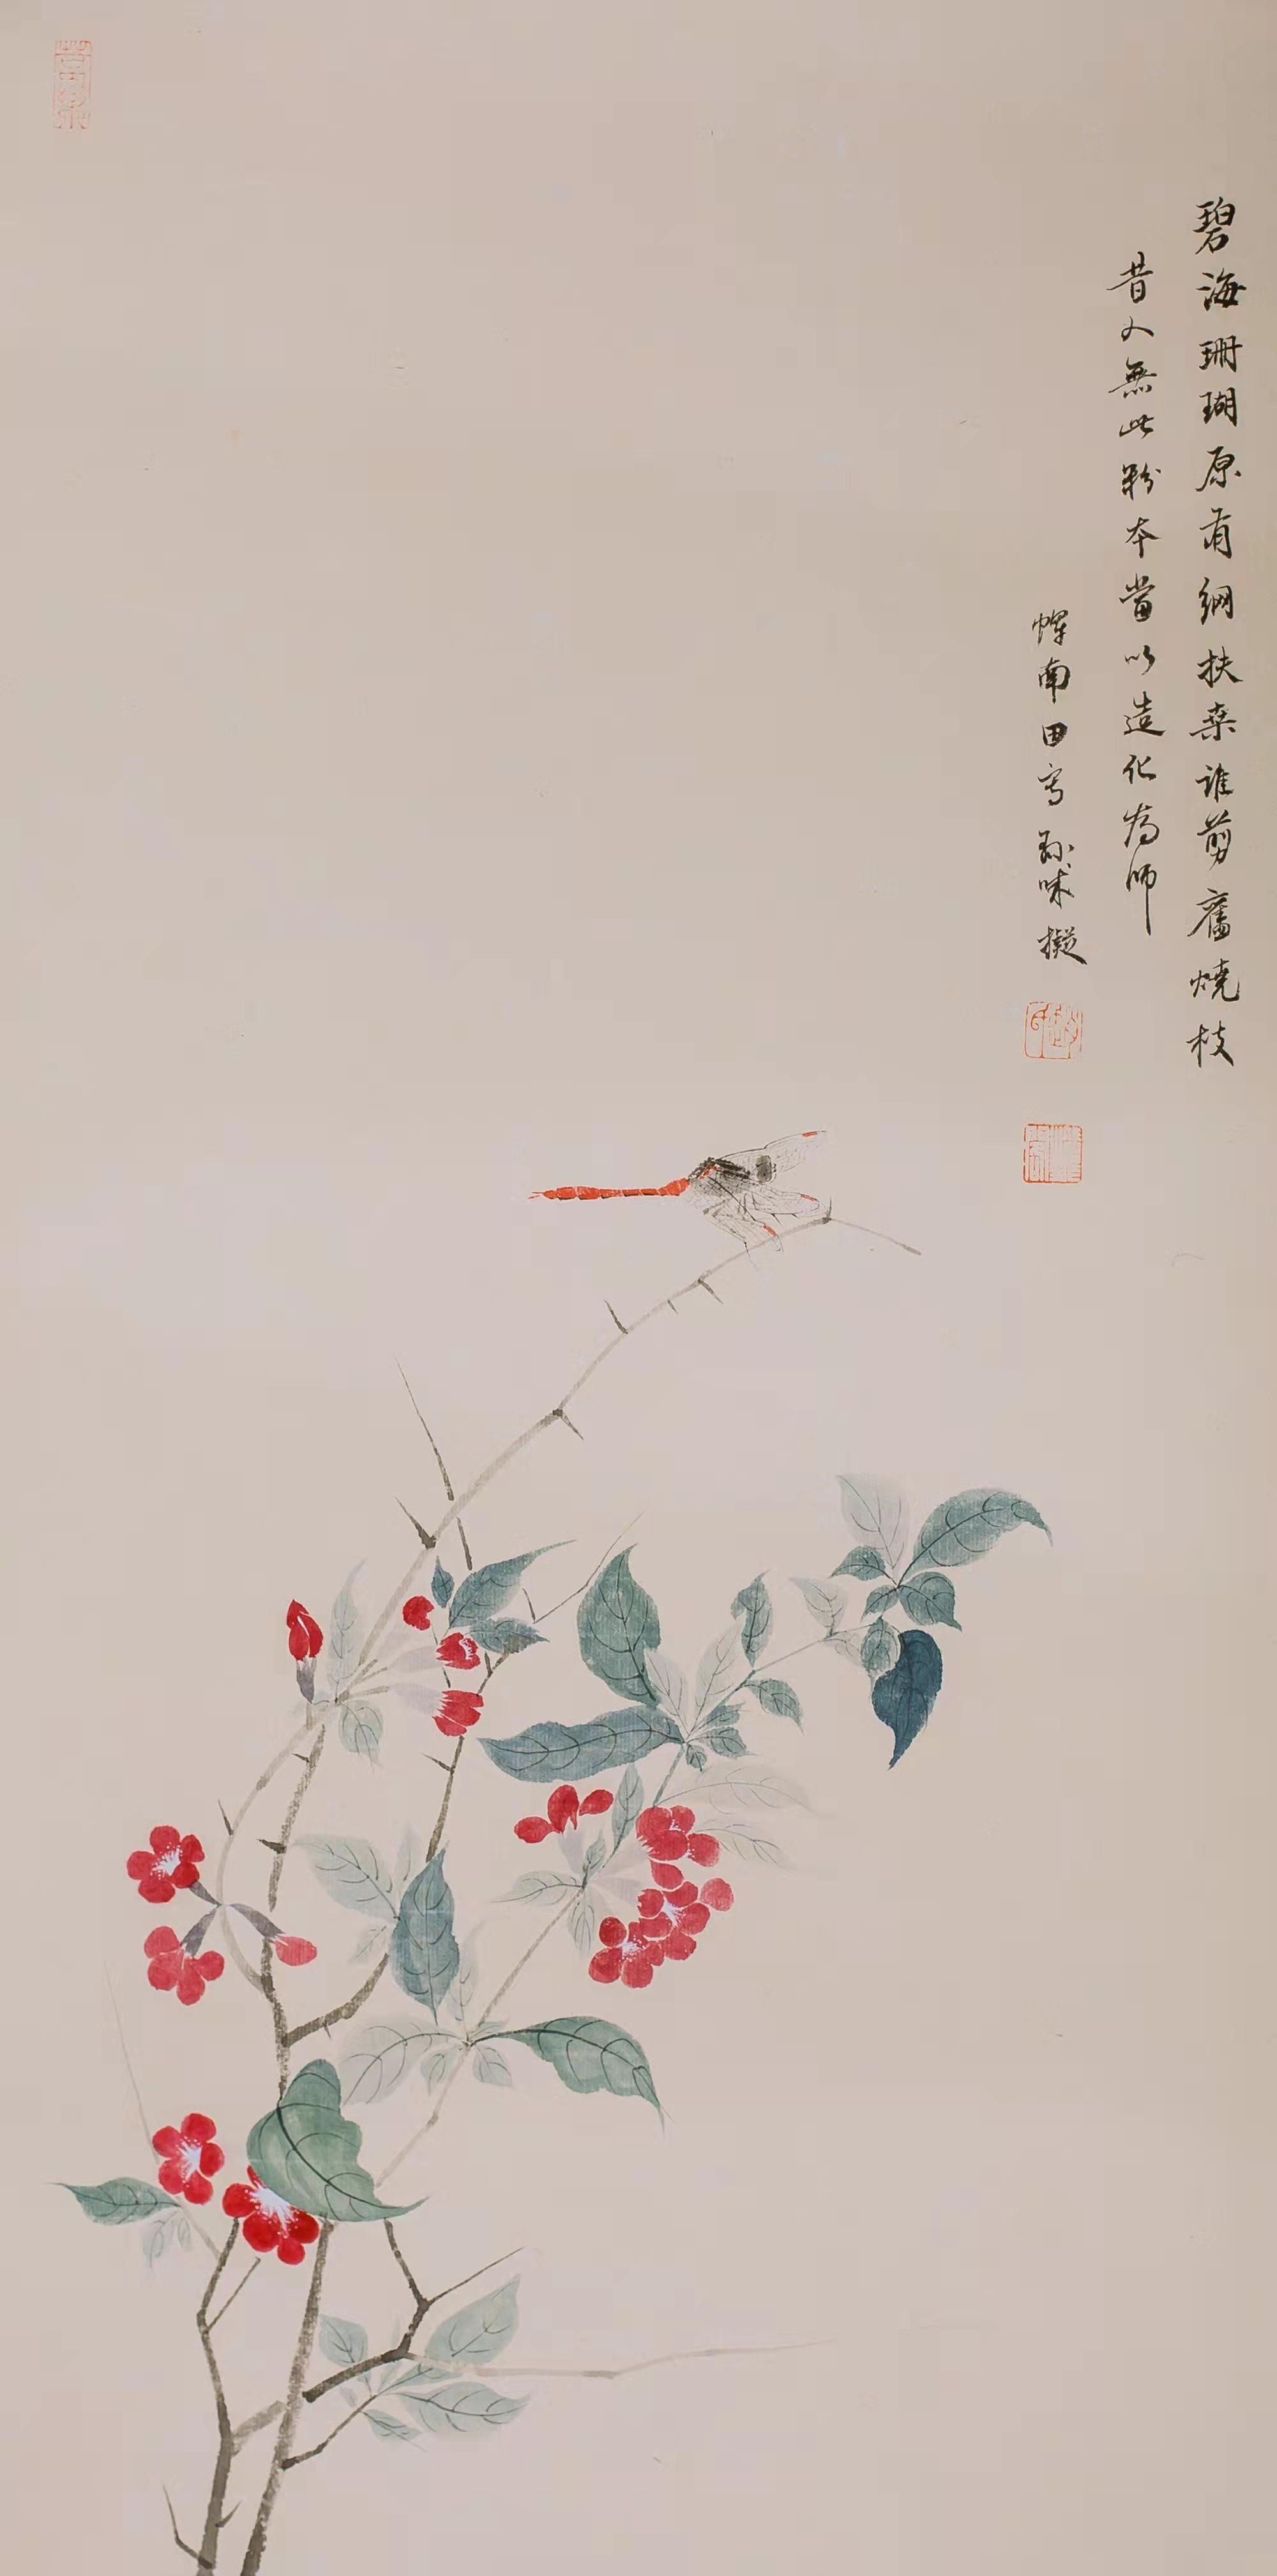 碧海珊瑚原有網扶桑誰剪舊燒枝
昔人無此粉本當以造化為師
惲南田寫 味擬